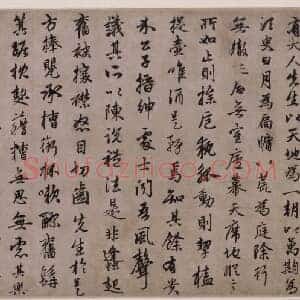 有大人先生以天地為一朝以萬期為
須臾日月為扃牖八荒為庭除行
無轍跡居無室廬幕天席地縱意
所如止則操卮執觚動則挈榼
提壺唯酒是務焉知其餘有貴
介公子搢紳處士聞吾風聲
議其所以陳說禮法是非鋒起
奮袂攘襟怒目切齒先生於是
方捧罌承槽銜杯漱醪奮髯
箕踞枕麴藉糟無思無慮其樂